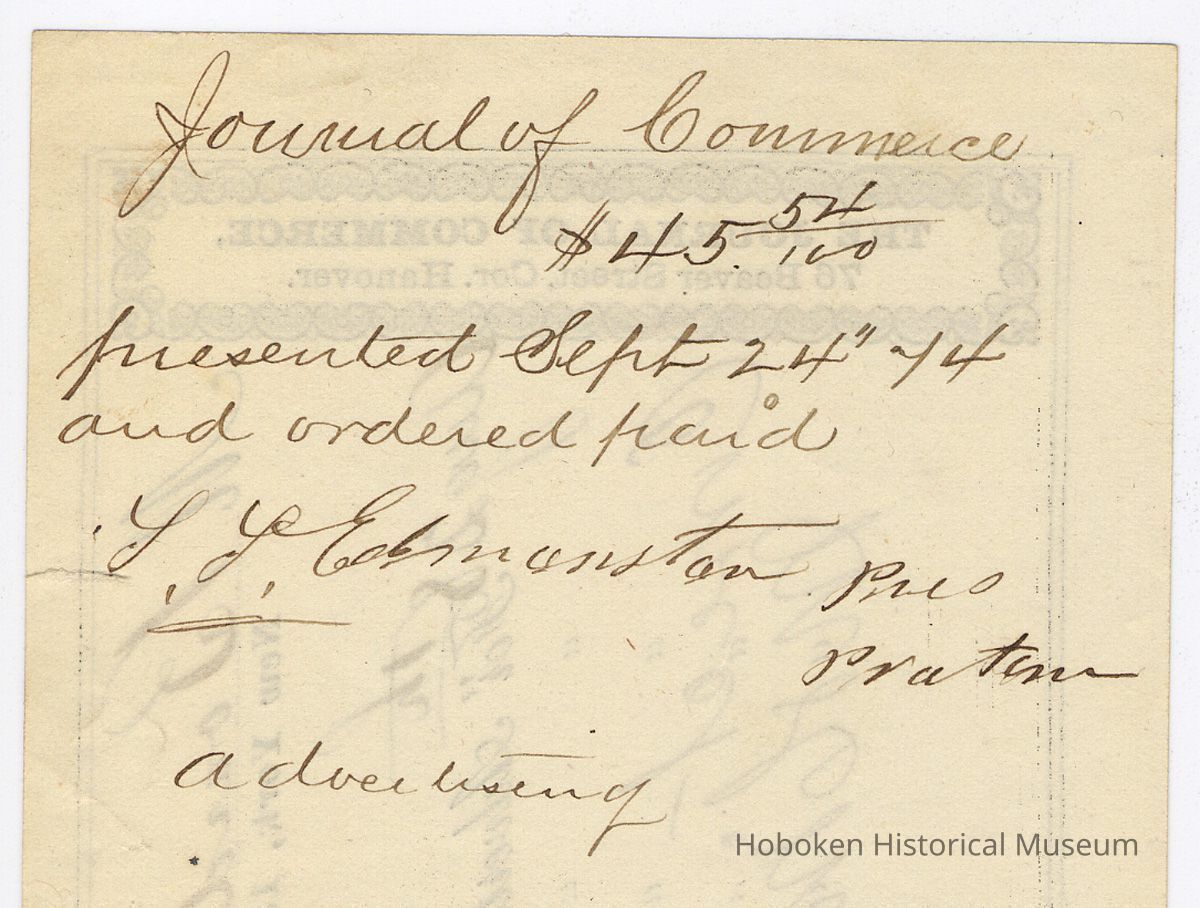 Journal of Commerce
$45. 54/100
presented Sept 24" 74
and ordered paid
S. L. Edmonston Pres
Pro tem
advertising
THE JOURNAL OF COMMERCE.
76 Beaver Street, Cor. Hanover.
New York,
Hoboken Historical Museum